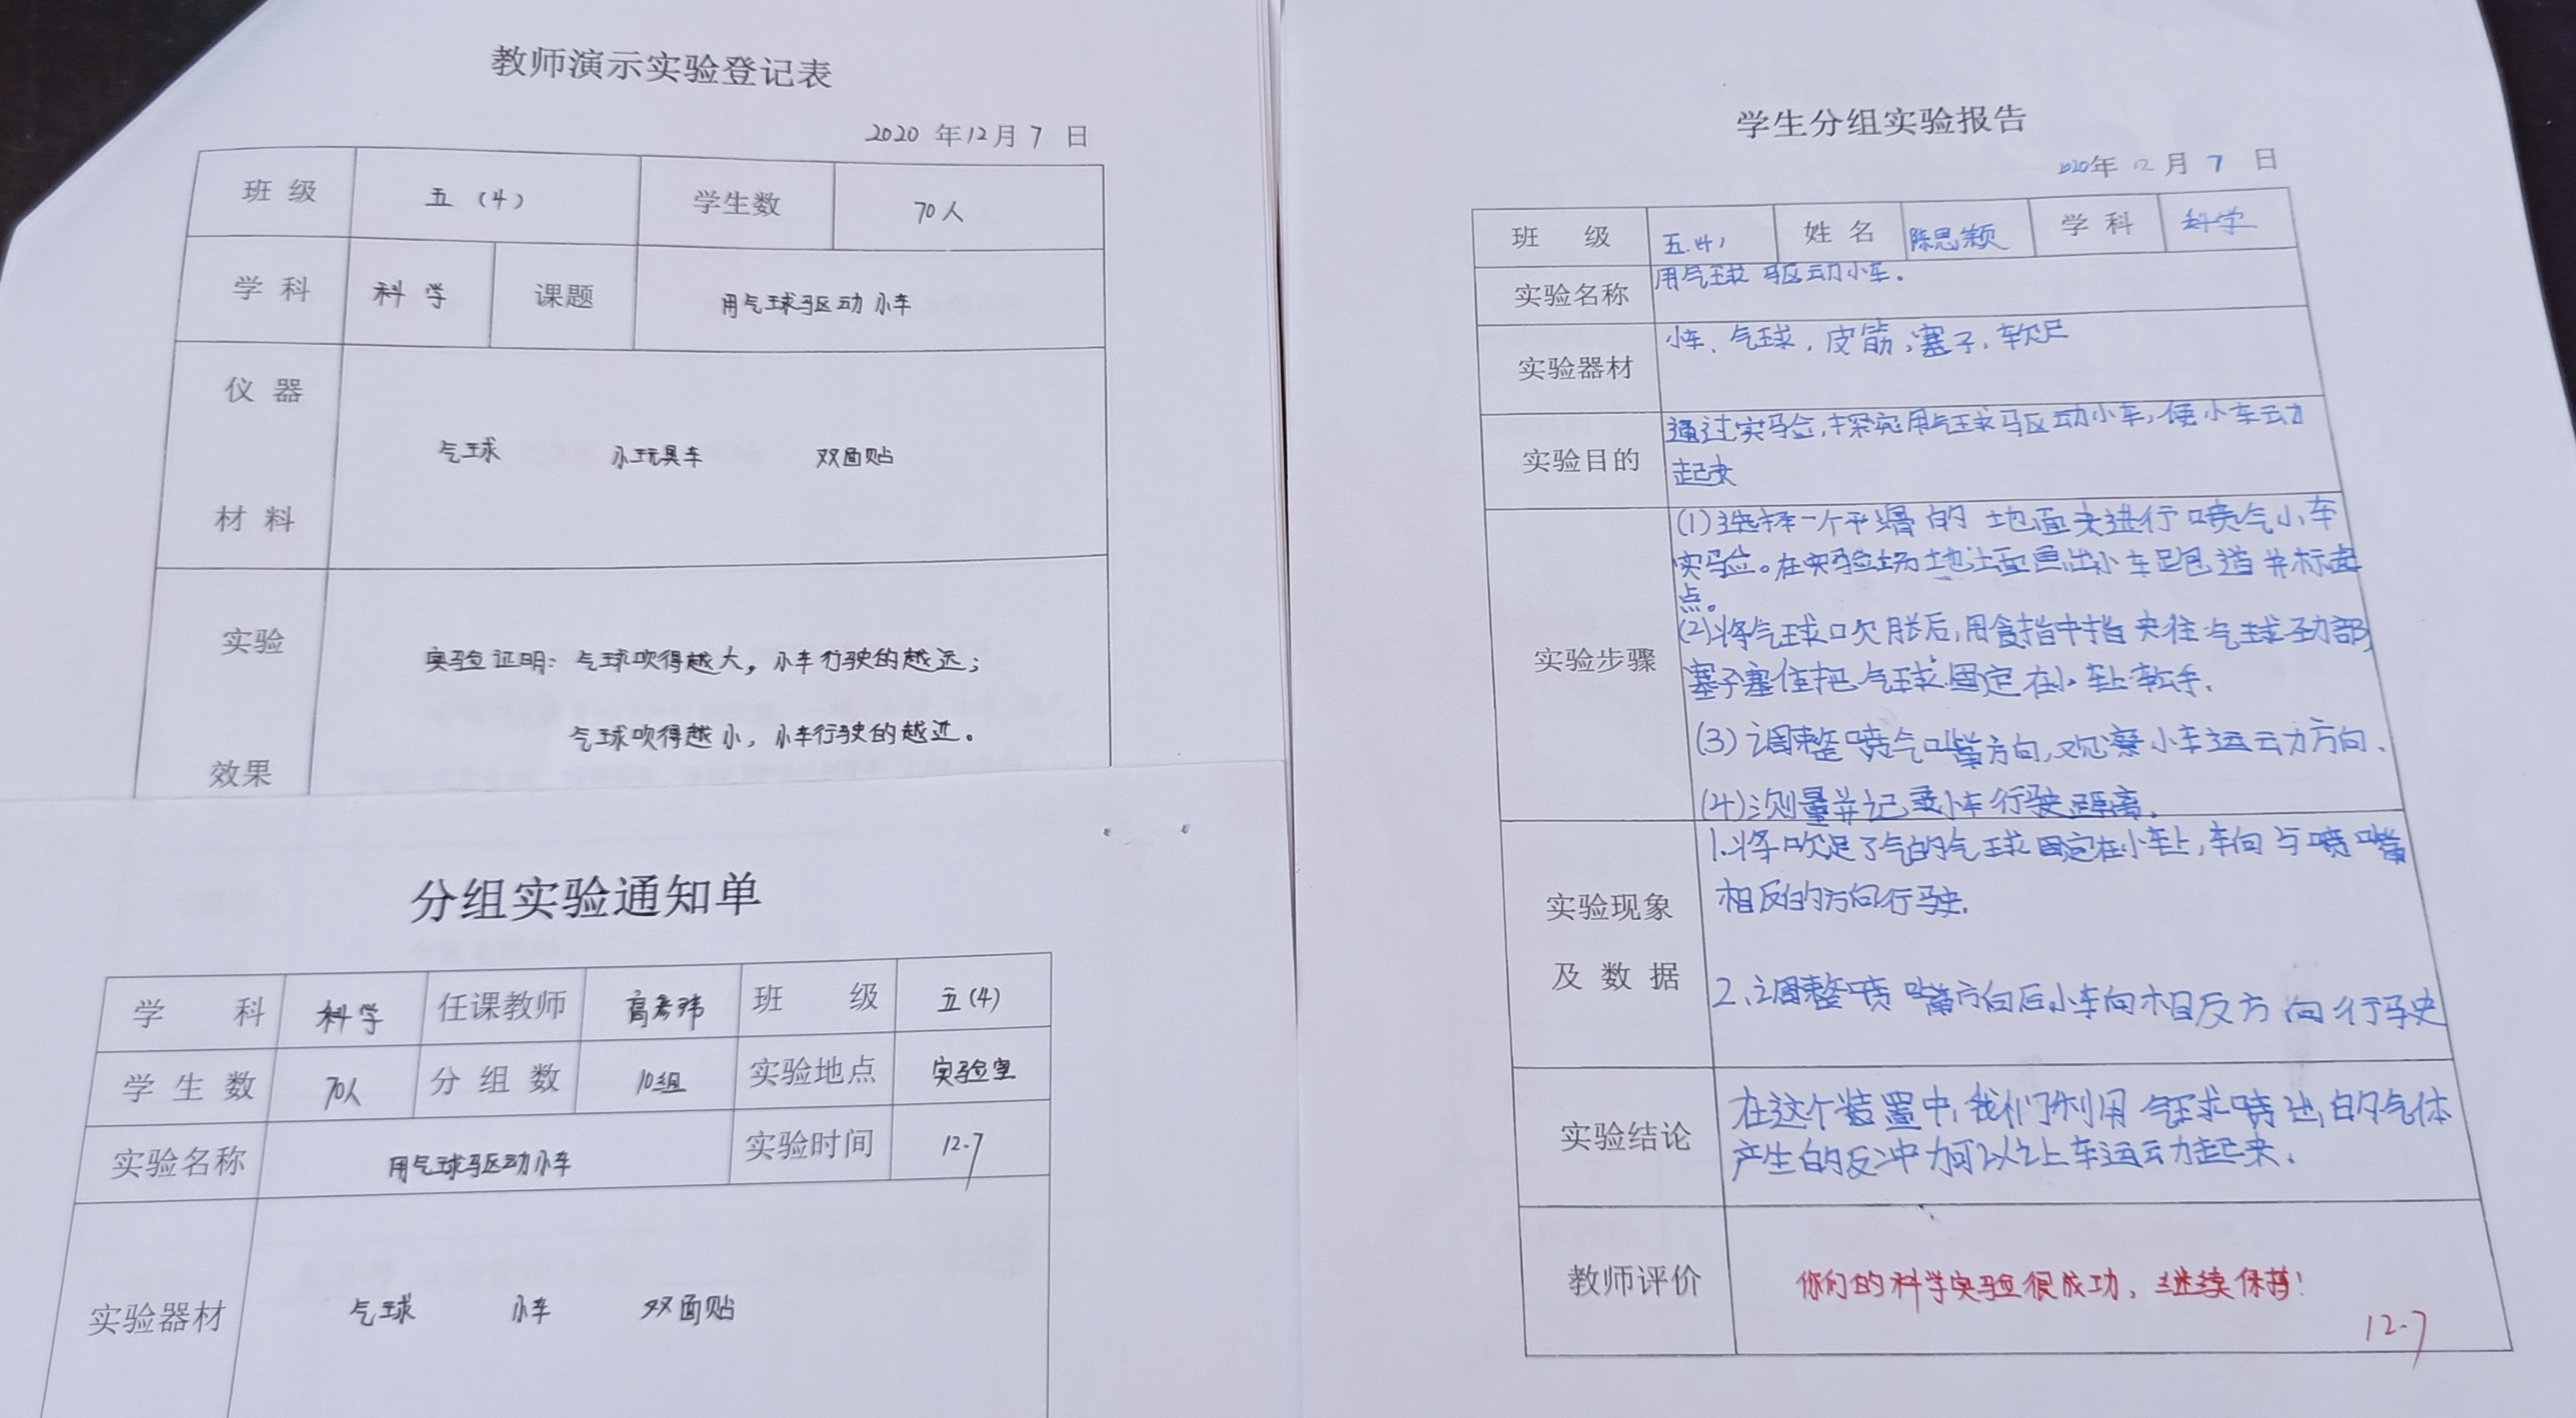 教师演示实验登记表
2020 年 12 月 7 日
班 级 五（4） 学生数 70人
学 科 科 学 课题 用气球驱动小车
仪 器
气球 小玩具车 双面贴
材 料
实验
实验证明：气球吹得越大，小车行驶的越远；
气球吹得越小，小车行驶的越近。
效果
分组实验通知单
学 科 科学 任课教师 班 级 五(4)
学 生 数 70人 分 组 数 10组 实验地点 实验室
实验名称 用气球驱动小车 实验时间 12.7
实验器材 气球 小车 双面贴
学生分组实验报告
2020年 12 月 7 日
班 级 五.4) 姓 名 陈思颖 学 科 科学
实验名称 用气球驱动小车.
实验器材 小车、气球，皮筋，塞子，软尺
实验目的 通过实验，探究用气球驱动小车，使小车动
起来
实验步骤
(1)选择一个平滑的地面来进行喷气小车
实验。在实验场地上面画出小车跑道并标起
点。
(2)将气球口吹胀后，用食指中指夹住气球颈部，
塞子塞住把气球固定在小车上松手.
(3)调整喷气嘴方向，观察小车运动方向.
(4)测量并记录小车行驶距离.
实验现象
及 数 据
1.将吹足了气的气球固定在小车上，车向与喷嘴
相反的方向行驶.
2.调整喷嘴方向后小车向相反方向行驶
实验结论
在这个装置中，我们利用气球喷出的气体
产生的反冲力可以让车运动起来.
教师评价 你们的科学实验很成功，继续保持！
12.7